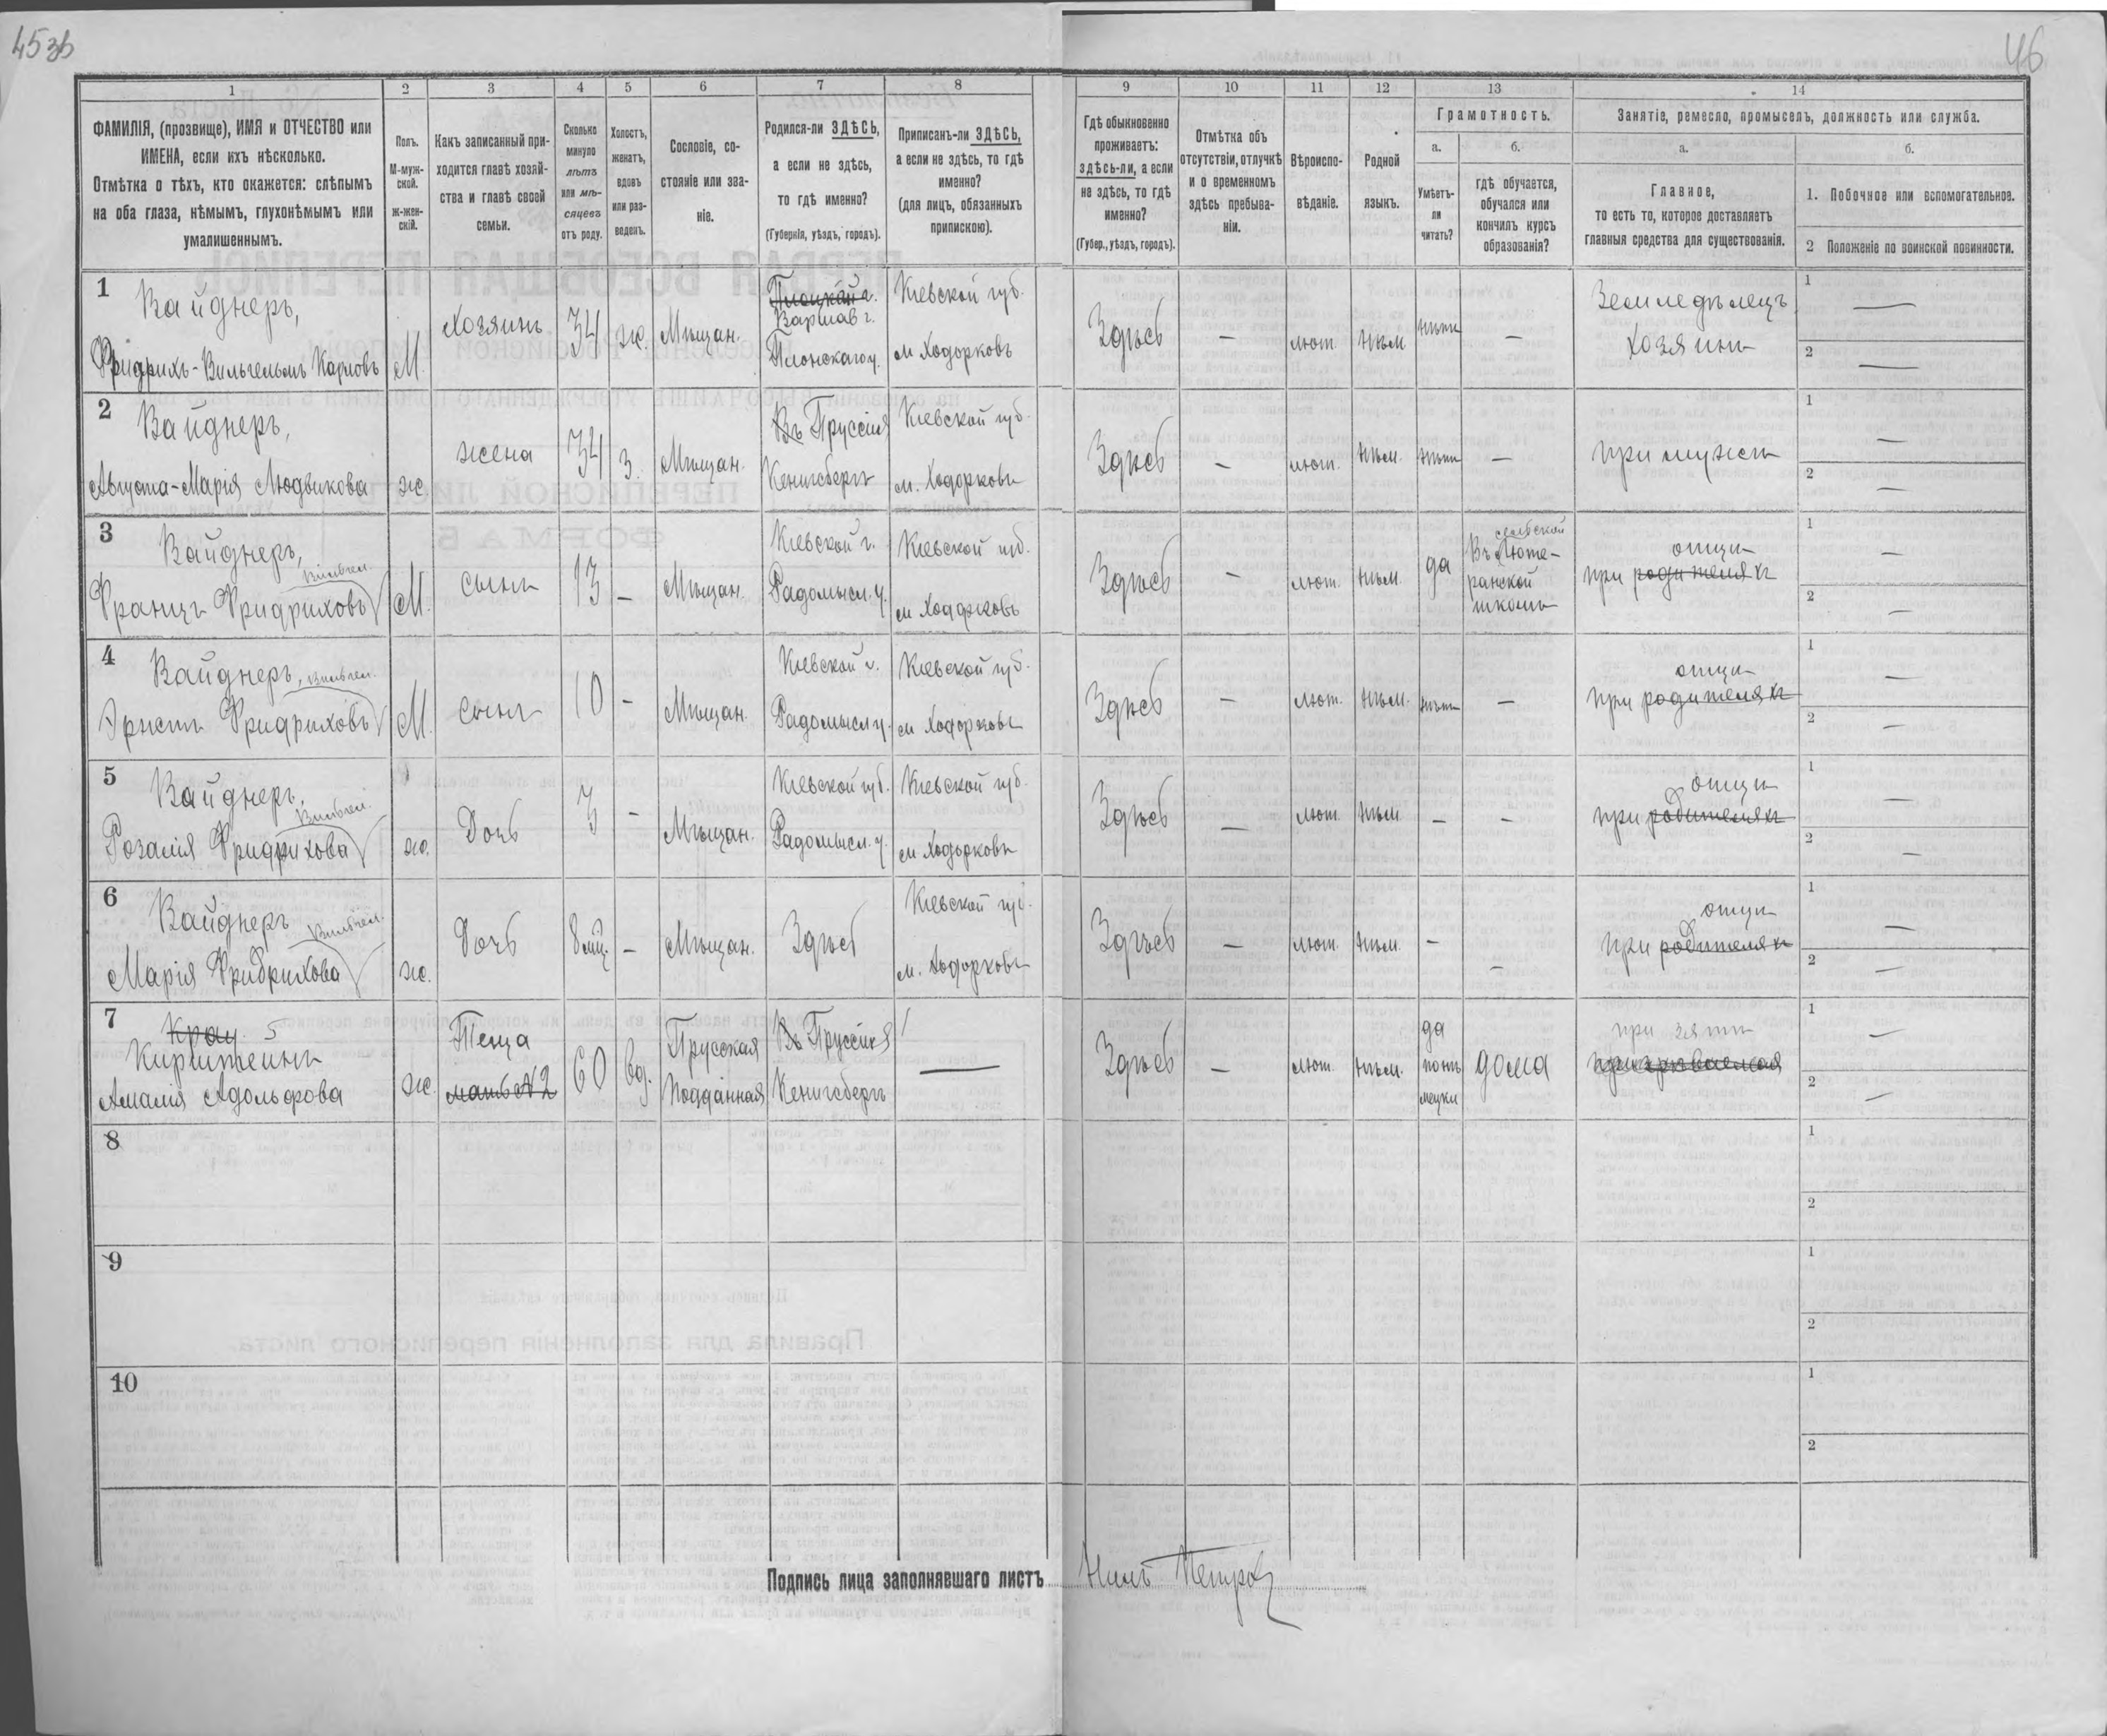 45 зв
46
1
2
3
4
5
6
7
8
9
10
11
12
13
14
ФАМИЛІЯ, (прозвище), ИМЯ и ОТЧЕСТВО или
ИМЕНА, если ихъ нѣсколько.
Отмѣтка о тѣхъ, кто окажется: слѣпымъ
на оба глаза, нѣмымъ, глухонѣмымъ или
умалишеннымъ.
Полъ.
М-муж-
ской.
ж-жен-
скій.
Какъ записанный при-
ходится главѣ хозяй-
ства и главѣ своей
семьи.
Сколько
минуло
лѣтъ
или мѣ-
сяцевъ
отъ роду.
Холостъ,
женатъ,
вдовъ
или раз-
веденъ.
Сословіе, со-
стояніе или зва-
ніе.
Родился-ли ЗДѢСЬ,
а если не здѣсь,
то гдѣ именно?
(Губернія, уѣздъ, городъ).
Приписанъ-ли ЗДѢСЬ,
а если не здѣсь, то гдѣ
именно?
(для лицъ, обязанныхъ
припискою).
Гдѣ обыкновенно
проживаетъ:
здѣсь-ли, а если
не здѣсь, то гдѣ
именно?
(Губер., уѣздъ, городъ).
Отмѣтка объ
отсутствіи, отлучкѣ
и о временномъ
здѣсь пребыва-
ніи.
Вѣроиспо-
вѣданіе.
Родной
языкъ.
Грамотность.
а.
Умѣетъ-
ли
читать?
б.
гдѣ обучается,
обучался или
кончилъ курсъ
образованія?
Занятіе, ремесло, промыселъ, должность или служба.
а.
Главное,
то есть то, которое доставляетъ
главныя средства для существованія.
б.
1. Побочное или вспомогательное.
2 Положеніе по воинской повинности.
1
Вайднеръ,
Фридрихъ-Вильгельмъ Карловъ
М.
Хозяинъ
34
ж.
Мѣщан.
Плоцкой г.
Варшав г.
Плонскаго у.
Кіевской губ.
м Ходорковъ
Здѣсь
—
лют.
нѣм.
нѣтъ
—
Земледѣлецъ
хозяинъ
1 —
2 —
2
Вайднеръ,
Августа-Марія Людвикова
ж
жена
34
з.
Мѣщан.
Въ Пруссія
Кенигсбергъ
Кіевской губ.
м. Ходорковъ
Здѣсь
—
лют.
нѣм.
нѣтъ
—
при мужѣ
1 —
2 —
3
Вайднеръ,
Вильгел.
Францъ Фридриховъ
М.
Сынъ
13
—
Мѣщан.
Кіевской г.
Радомысл. у.
Кіевской губ.
м Ходорковъ
Здѣсь
—
лют.
нѣм.
да
сельской
Въ Люте-
ранской
школѣ
отцѣ
при родителяхъ
1 —
2 —
4
Вайднеръ, Вильгел.
Эрнстъ Фридриховъ
М.
Сынъ
10
—
Мѣщан.
Кіевской г.
Радомысл у.
Кіевской губ.
м Ходорковъ
Здѣсь
—
лют.
нѣм.
нѣтъ
—
отцѣ
при родителяхъ
1 —
2 —
5
Вайднеръ,
Вильгел.
Розалія Фридрихова
ж.
Дочь
—
Мѣщан.
Кіевской губ.
Радомысл. у.
Кіевской губ.
м Ходорковъ
Здѣсь
—
лют.
нѣм
—
—
отцѣ
при родителяхъ
1 —
2 —
6
Вайднеръ
Вильгел.
Марія Фридрихова
ж.
Дочь
8 мѣс.
—
Мѣщан.
Здѣсь
Кіевской губ.
м. Ходорковъ
Здѣсь
—
лют.
нѣм.
—
—
отцѣ
при родителяхъ
1 —
2 —
7
Кирштейнъ
Амалія Адольфова
ж.
Теща
мать №2
60
вд.
Прусская
Подданная
Въ Пруссія
Кенигсбергъ
—
Здѣсь
—
лют.
нѣм.
да
понѣ
мецки
дома
при зятѣ
призрѣваемая
1 —
2 —
8
1
2
9
1
2
10
1
2
Подпись лица заполнявшаго листъ